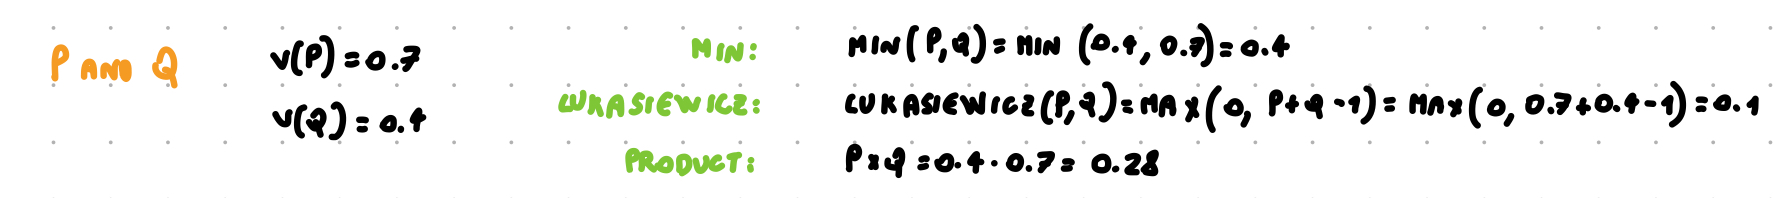 P AND Q V(P)=0.7 MIN: MIN(P,Q)=MIN (0.4, 0.7)=0.4
V(Q)=0.4 LUKASIEWICZ: LUKASIEWICZ(P,Q)=MAX(0, P+Q-1)=MAX(0, 0.7+0.4-1)=0.1
PRODUCT: P×Q=0.4·0.7=0.28